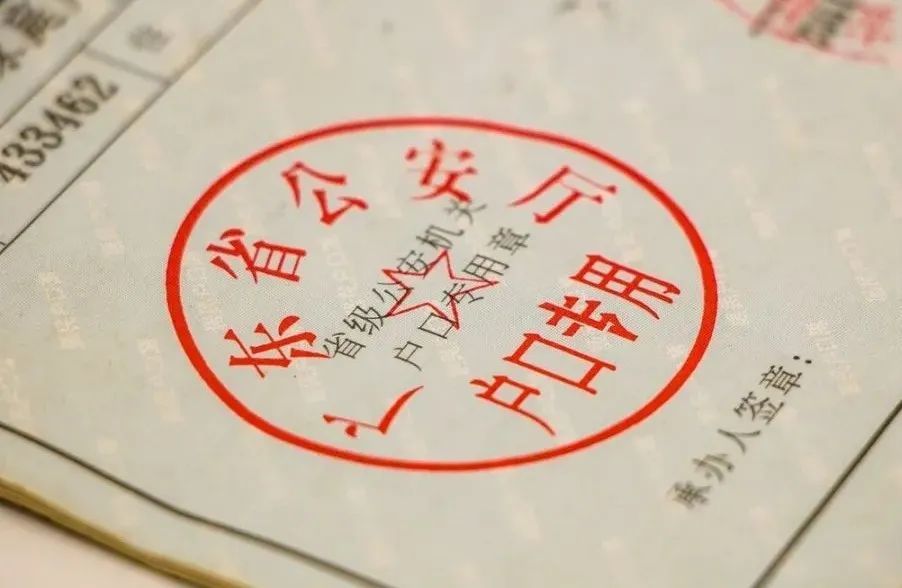 433462
广东省公安厅
省级公安机关
户口专用章
户口专用
承办人签章：